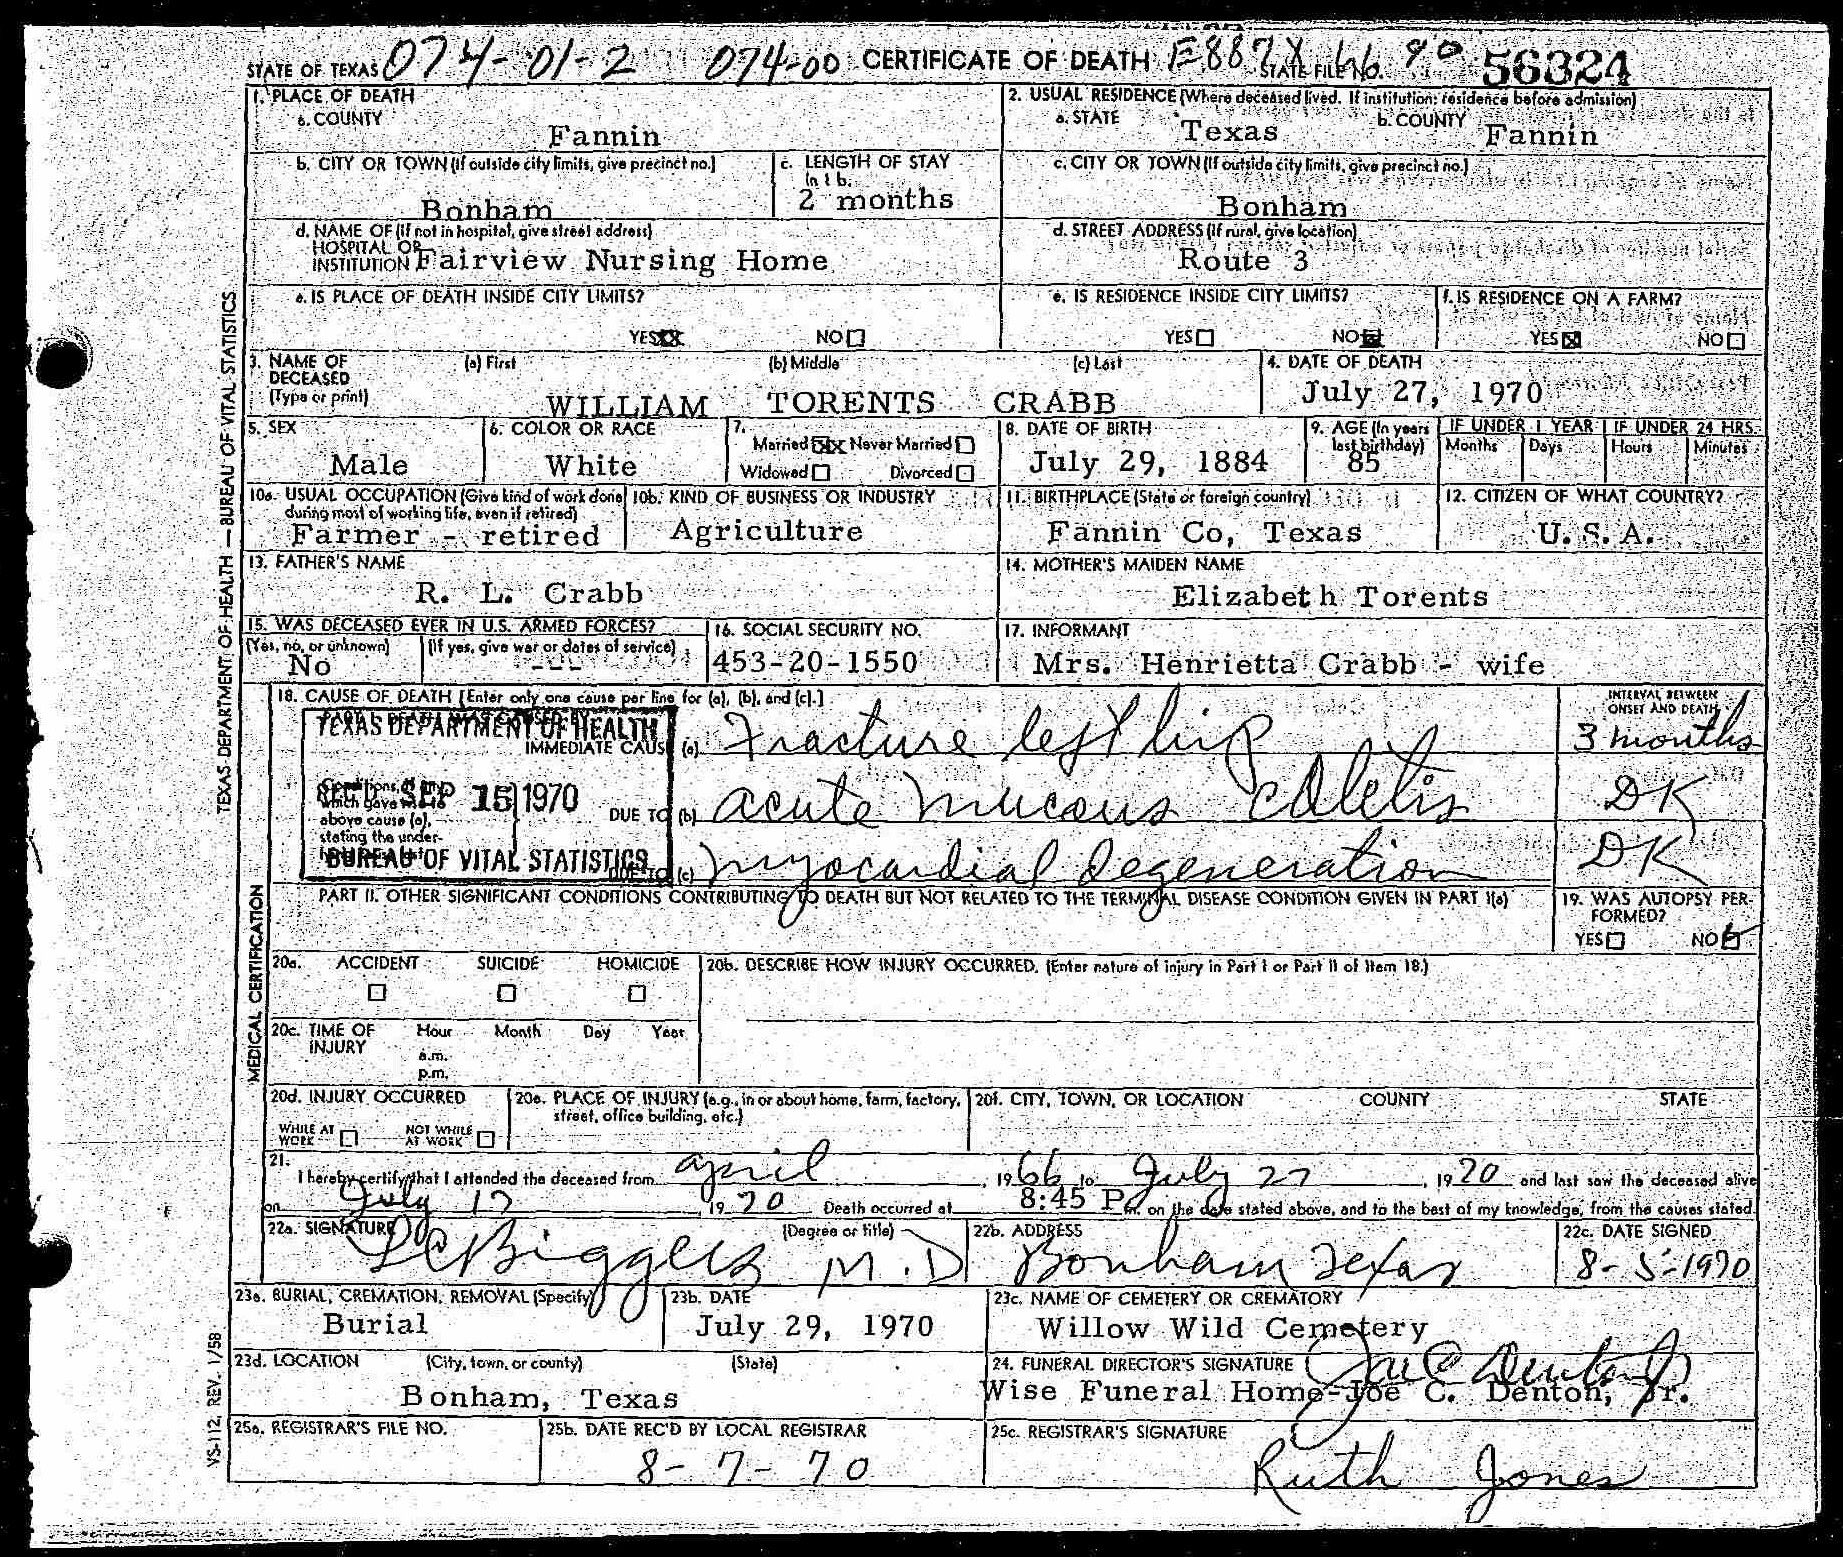 STATE OF TEXAS 074-01-2 074-00 CERTIFICATE OF DEATH E887X STATE FILE NO. 56324
1. PLACE OF DEATH
a. COUNTY
Fannin
2. USUAL RESIDENCE (Where deceased lived. If institution: residence before admission)
a. STATE Texas b. COUNTY Fannin
b. CITY OR TOWN (If outside city limits, give precinct no.)
Bonham
c. LENGTH OF STAY
in 1 b.
2 months
c. CITY OR TOWN (If outside city limits, give precinct no.)
Bonham
d. NAME OF (If not in hospital, give street address)
HOSPITAL OR
INSTITUTION Fairview Nursing Home
d. STREET ADDRESS (If rural, give location)
Route 3
e. IS PLACE OF DEATH INSIDE CITY LIMITS?
YES XX NO
e. IS RESIDENCE INSIDE CITY LIMITS?
YES NO X
f. IS RESIDENCE ON A FARM?
YES X NO
3. NAME OF
DECEASED
(Type or print)
(a) First (b) Middle (c) Last
WILLIAM TORENTS CRABB
4. DATE OF DEATH
July 27, 1970
5. SEX
Male
6. COLOR OR RACE
White
7.
Married XX Never Married
Widowed Divorced
8. DATE OF BIRTH
July 29, 1884
9. AGE (In years
last birthday)
85
IF UNDER 1 YEAR IF UNDER 24 HRS.
Months Days Hours Minutes
10a. USUAL OCCUPATION (Give kind of work done
during most of working life, even if retired)
Farmer - retired
10b. KIND OF BUSINESS OR INDUSTRY
Agriculture
11. BIRTHPLACE (State or foreign country)
Fannin Co, Texas
12. CITIZEN OF WHAT COUNTRY?
U. S. A.
13. FATHER'S NAME
R. L. Crabb
14. MOTHER'S MAIDEN NAME
Elizabeth Torents
15. WAS DECEASED EVER IN U.S. ARMED FORCES?
(Yes, no, or unknown) (If yes, give war or dates of service)
No ---
16. SOCIAL SECURITY NO.
453-20-1550
17. INFORMANT
Mrs. Henrietta Crabb - wife
18. CAUSE OF DEATH [Enter only one cause per line for (a), (b), and (c).]
INTERVAL BETWEEN
ONSET AND DEATH
TEXAS DEPARTMENT OF HEALTH
IMMEDIATE CAUSE (a) Fracture left hip 3 months
SEP 15 1970
Conditions, if any,
which gave rise to
above cause (a),
stating the under-
DUE TO (b) acute mucous coletis DK
BUREAU OF VITAL STATISTICS
DUE TO (c) myocardial degeneration DK
PART II. OTHER SIGNIFICANT CONDITIONS CONTRIBUTING TO DEATH BUT NOT RELATED TO THE TERMINAL DISEASE CONDITION GIVEN IN PART I(a)
19. WAS AUTOPSY PER-
FORMED?
YES NO
20a. ACCIDENT SUICIDE HOMICIDE
20b. DESCRIBE HOW INJURY OCCURRED. (Enter nature of injury in Part I or Part II of Item 18.)
20c. TIME OF
INJURY
Hour Month Day Year
a.m.
p.m.
20d. INJURY OCCURRED
WHILE AT
WORK
NOT WHILE
AT WORK
20e. PLACE OF INJURY (e.g., in or about home, farm, factory,
street, office building, etc.)
20f. CITY, TOWN, OR LOCATION COUNTY STATE
21.
I hereby certify that I attended the deceased from April, 1966 to July 27, 1970 and last saw the deceased alive
on July 17 1970 Death occurred at 8:45 P m. on the date stated above, and to the best of my knowledge, from the causes stated.
22a. SIGNATURE (Degree or title)
LC Biggers M.D
22b. ADDRESS
Bonham Texas
22c. DATE SIGNED
8-5-1970
23a. BURIAL, CREMATION, REMOVAL (Specify)
Burial
23b. DATE
July 29, 1970
23c. NAME OF CEMETERY OR CREMATORY
Willow Wild Cemetery
23d. LOCATION (City, town, or county) (State)
Bonham, Texas
24. FUNERAL DIRECTOR'S SIGNATURE Joe C Denton Jr
Wise Funeral Home-Joe C. Denton, Jr.
25a. REGISTRAR'S FILE NO.
25b. DATE REC'D BY LOCAL REGISTRAR
8-7-70
25c. REGISTRAR'S SIGNATURE
Ruth Jones
TEXAS DEPARTMENT OF HEALTH — BUREAU OF VITAL STATISTICS
MEDICAL CERTIFICATION
VS-112, REV. 1/58